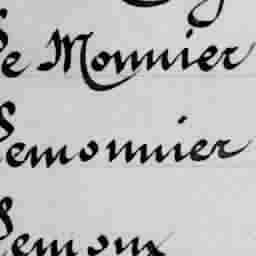 Le Monnier
Lemonnier
Lemoux